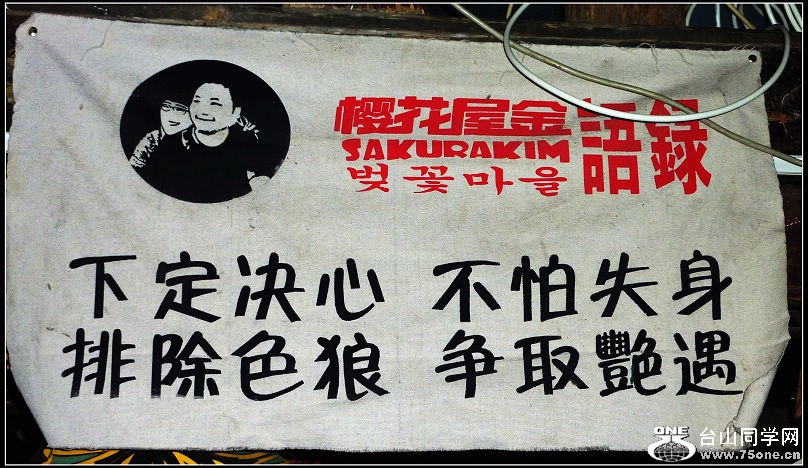 樱花屋金語録
SAKURAKIM
벚꽃마을
下定决心 不怕失身
排除色狼 争取艷遇
ONE 台山同学网
www.75one.cn